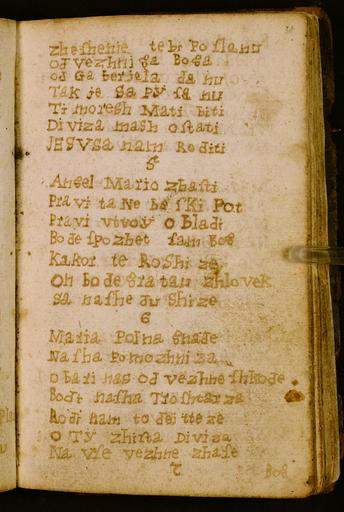 zheshenie tebi Poslanu
od vezhni ga Boga
od Gaberiela da nu
Tak je Sa Py sa nu
Ti moresh Mati biti
Diviza mash ostati
JESUSA nam Roditi
5
Angel Mario zhasti
Pravi ta Ne be ski Pot
Pravi v tvoy obladi
Bode spozhet sam Bog
Kakor te Roshi ze
On bo de gratau zhlovek
sa nashe Du Shize
6
Maria Polna gnade
Nasha Pomozhniza
obari nas od vezhne shkode
Bodi nasha Troshtarza
Rodi nam to deitteze
O Ty zhista Diviza
Na vse vezhne zhase
7
Bog